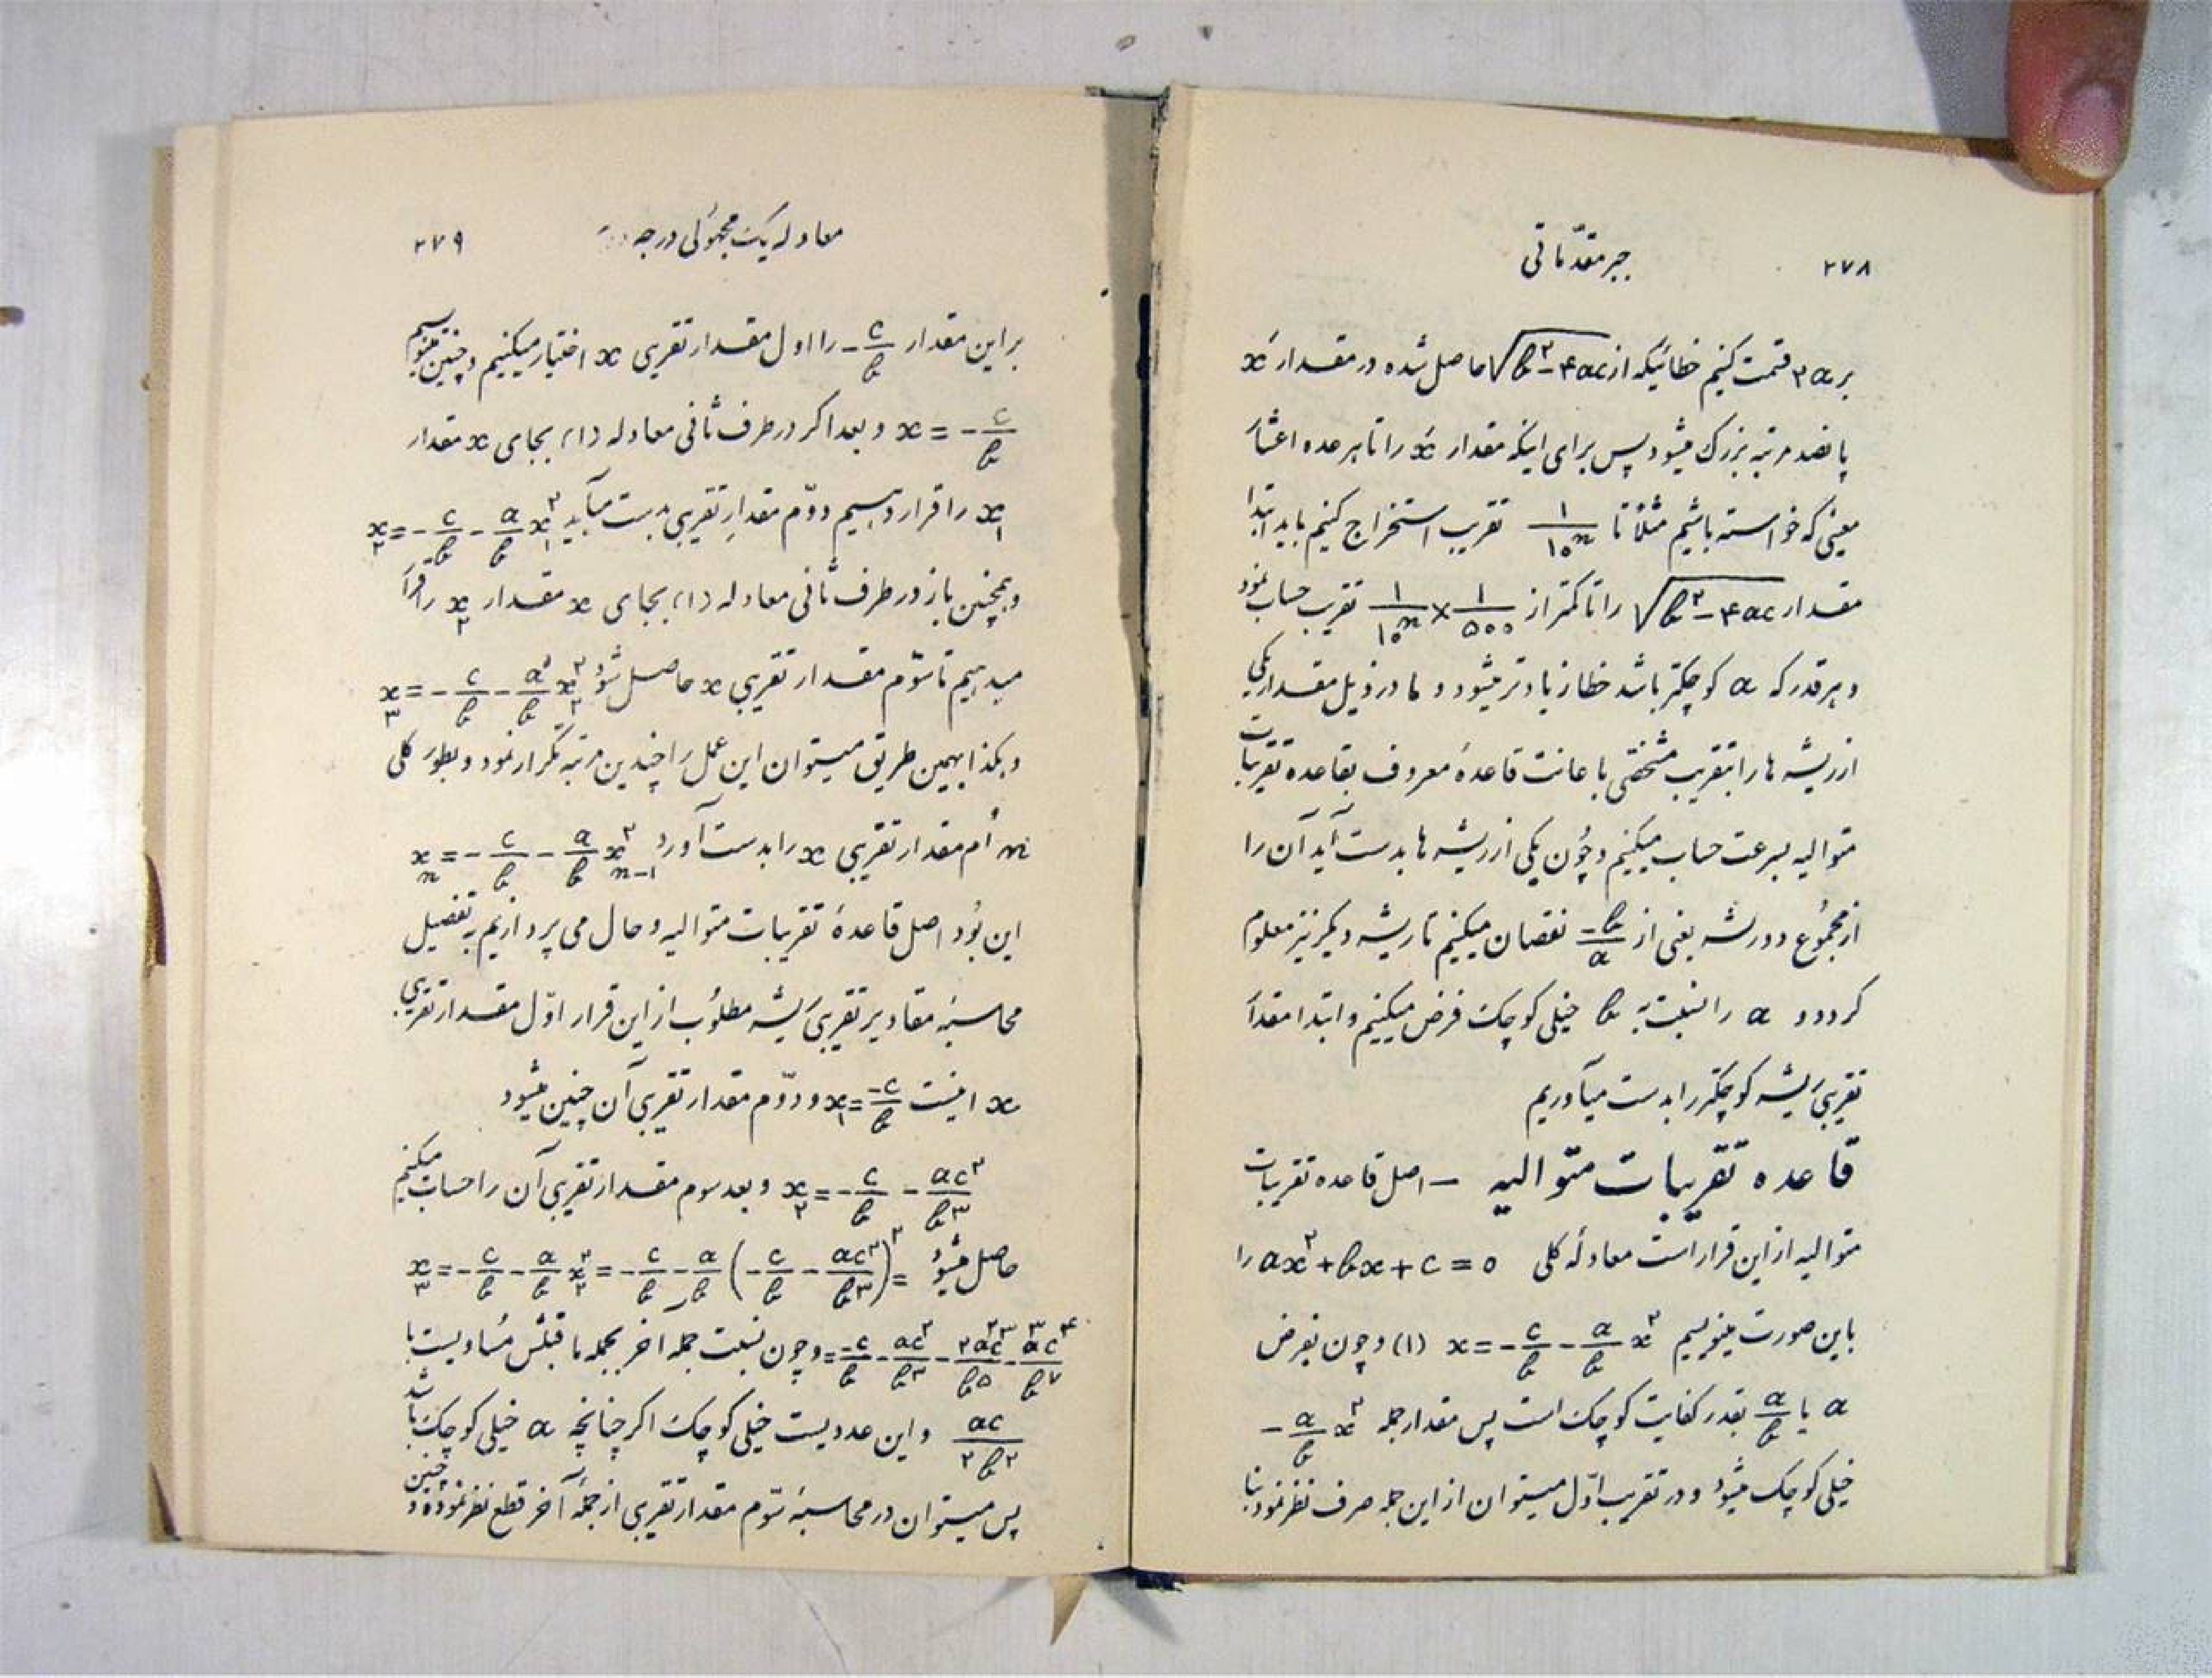 ۲۷۸ جبر مقدّماتی
بر ۲a قسمت کنیم خطائیکه از √(b²−۴ac) حاصل شده در مقدار x′
پانصد مرتبه بزرگ میشود پس برای اینکه مقدار x′ را تا هر عده اعشار
معینی که خواسته باشیم مثلاً تا ۱/۱۰ⁿ تقریب استخراج کنیم باید ابتدا
مقدار √(b²−۴ac) را تا کمتر از ۱/۵۰۰ × ۱/۱۰ⁿ تقریب حساب نمود
و هر قدر که a کوچکتر باشد خطا زیادتر میشود و ما در ذیل مقدار یکی
از ریشه ها را بتقریب مشخصی باعانت قاعدهٔ معروف بقاعده تقریبات
متوالیه بسرعت حساب میکنیم و چون یکی از ریشه ها بدست آید آن را
از مجموع دو ریشه یعنی از −b/a نقصان میکنیم تا ریشه دیگر نیز معلوم
گردد و a را نسبت به b خیلی کوچک فرض میکنیم و ابتدا مقدار
تقریبی ریشه کوچکتر را بدست میآوریم
قاعده تقریبات متوالیه – اصل قاعده تقریبات
متوالیه از این قرار است معادلهٔ کلی ax²+bx+c=۰ را
باین صورت مینویسیم x=−c/b−a/b x² (۱) و چون بفرض
a یا a/b بقدر کفایت کوچک است پس مقدار جمله −a/b x²
خیلی کوچک میشود و در تقریب اوّل میتوان از این جمله صرف نظر نمود بنا
معادله یک مجهولی درجه ۲۷۹
بر این مقدار −c/b را اول مقدار تقریبی x اختیار میکنیم و چنین مینویسیم
x=−c/b و بعد اگر در طرف ثانی معادله (۱) بجای x مقدار
x₁ را قرار دهیم دوّم مقدار تقریبی بدست میآید x₂=−c/b−a/b x₁²
و همچنین باز در طرف ثانی معادله (۱) بجای x مقدار x₂ را قرار
میدهیم تا سوّم مقدار تقریبی x حاصل شود x₃=−c/b−a/b x₂²
و هکذا بهمین طریق میتوان این عمل را چندین مرتبه تکرار نمود و بطور کلی
n اُم مقدار تقریبی x را بدست آورد xₙ=−c/b−a/b x²ₙ₋₁
این بود اصل قاعدهٔ تقریبات متوالیه و حال می پردازیم به تفصیل
محاسبهٔ مقادیر تقریبی ریشه مطلوب از این قرار اوّل مقدار تقریبی
x اینست x₁=−c/b و دوّم مقدار تقریبی آن چنین میشود
x₂=−c/b−ac²/b³ و بعد سوم مقدار تقریبی آن را حساب میکنیم
حاصل میشود x₃=−c/b−a/b x₂²=−c/b−a/b(−c/b−ac²/b³)²=
=−c/b−ac²/b³−۲a²c³/b⁵−a³c⁴/b⁷ و چون نسبت جمله آخر بجمله ما قبلش مساویست با
ac/۲b² و این عددیست خیلی کوچک اگر چنانچه a خیلی کوچک باشد
پس میتوان در محاسبهٔ سوّم مقدار تقریبی از جمله آخر قطع نظر نموده و چنین